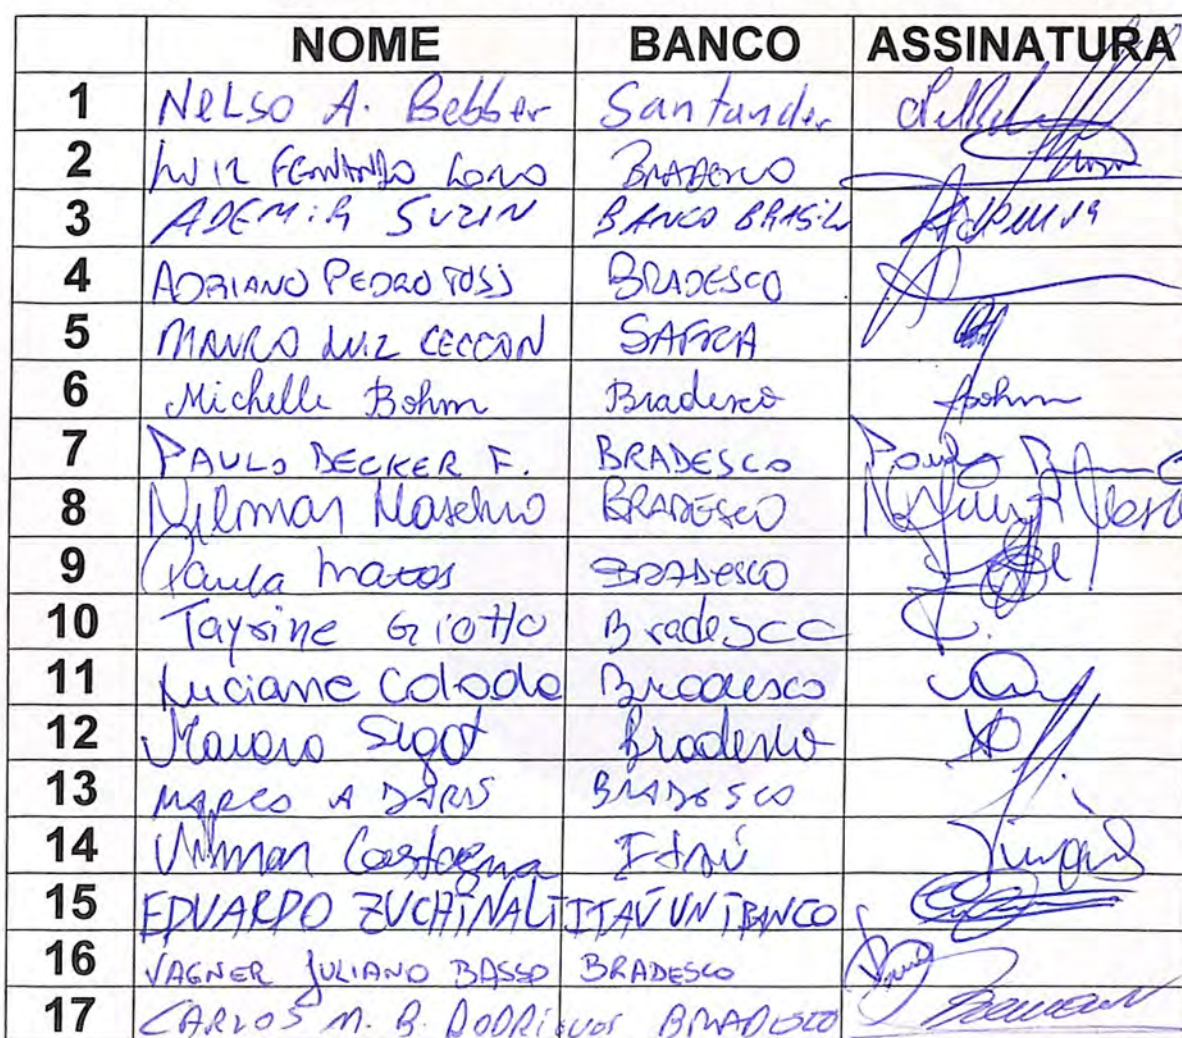 NOME BANCO ASSINATURA
1 Nelso A. Bebber Santander
2 Luiz Fernando Bradesco
3 ADEMIR SUZIN BANCO BRASIL Ademir
4 ADRIANO PEDRO TOSI BRADESCO
5 MAURO LUIZ CECCON SAFRA
6 Michelle Bohm Bradesco Bohm
7 PAULO DECKER F. BRADESCO Paulo
8 Nilmar Maschio BRADESCO
9 Paula Matos BRADESCO
10 Taysine Giotto Bradesco
11 Luciane Colodo Bradesco
12 Sigot Bradesco
13 MARCO A DARIS BRADESCO
14 Vilmar Castagna Itaú
15 EDUARDO ZUCHINALI ITAÚ UNIBANCO
16 VAGNER JULIANO BASSO BRADESCO
17 CARLOS M. B. RODRIGUES BRADESCO